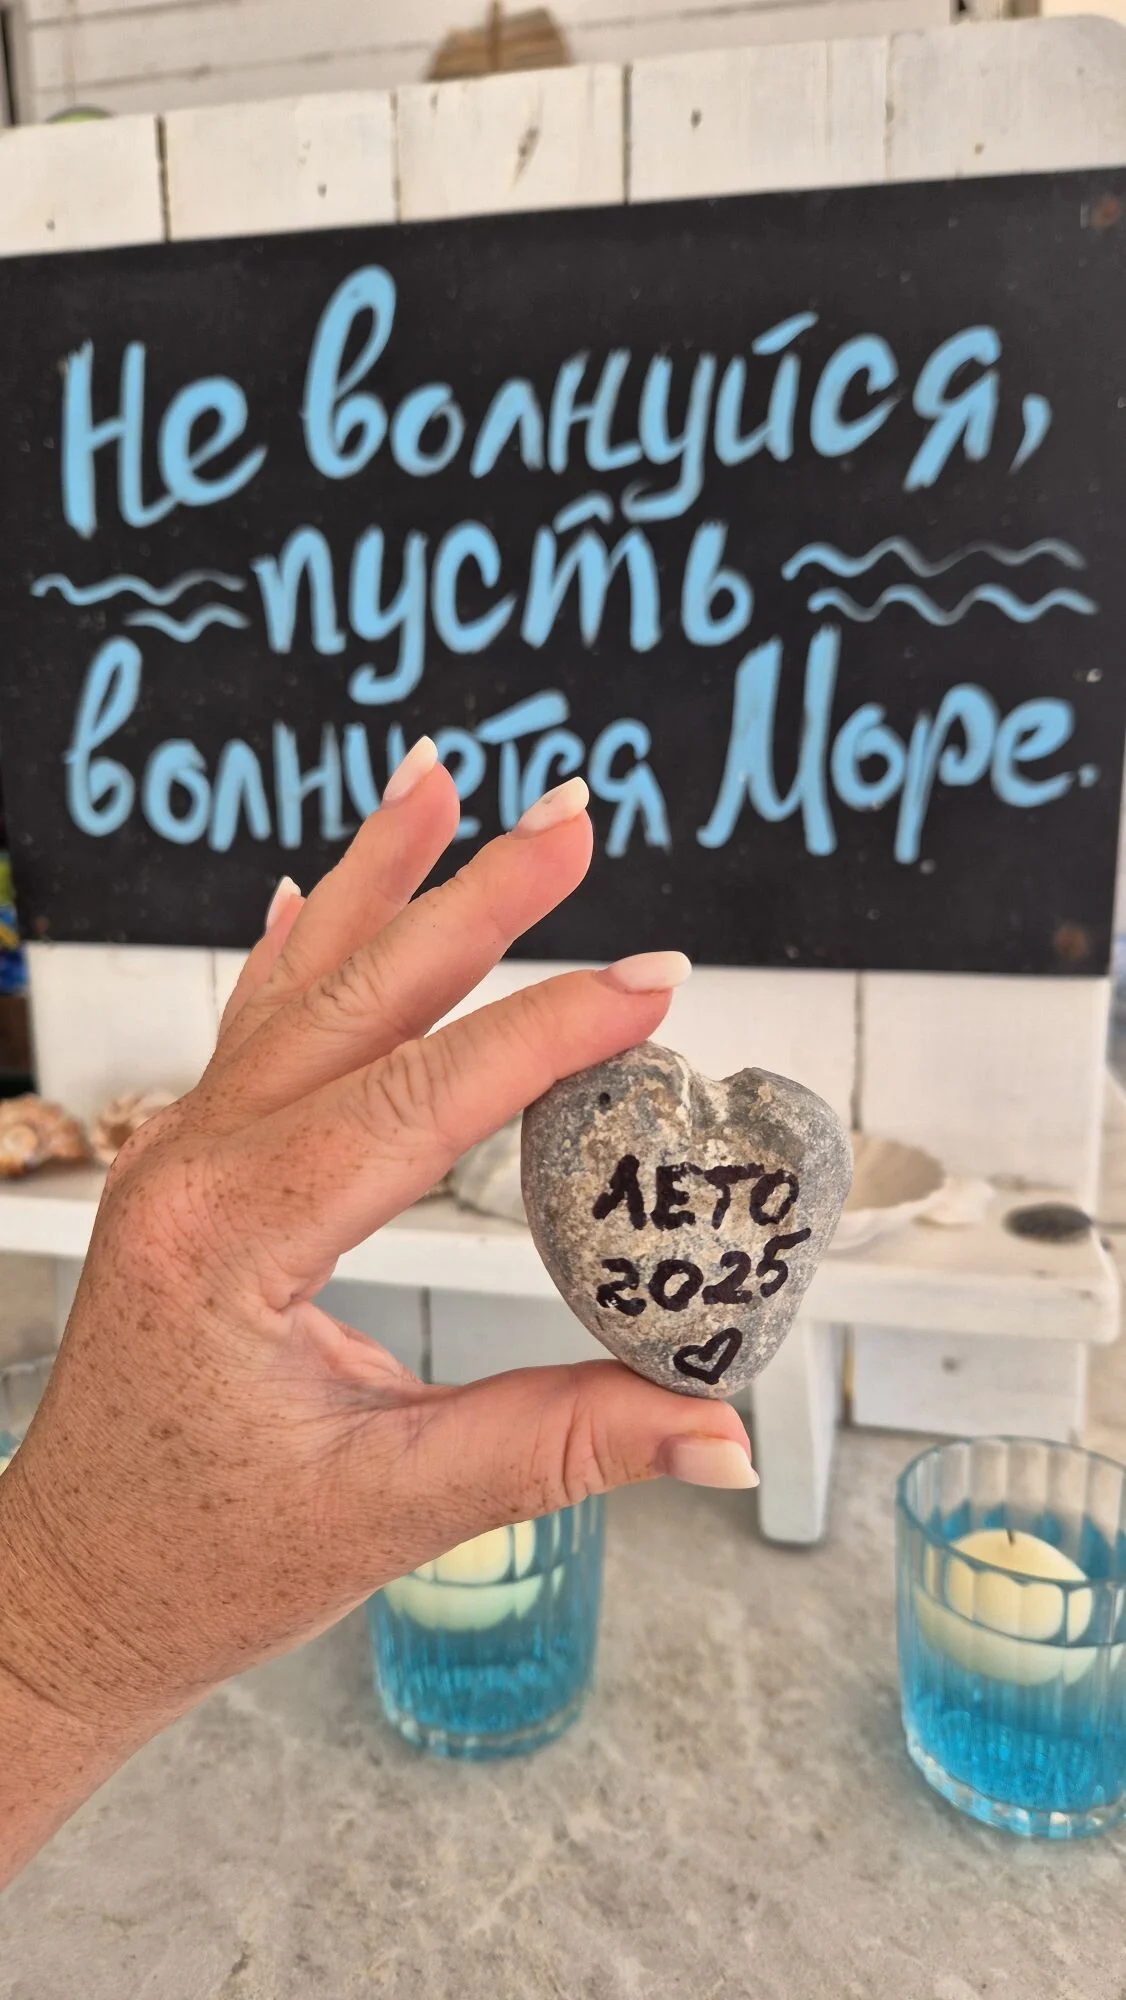 Не волнуйся,
пусть
волнуется Море.
ЛЕТО
2025